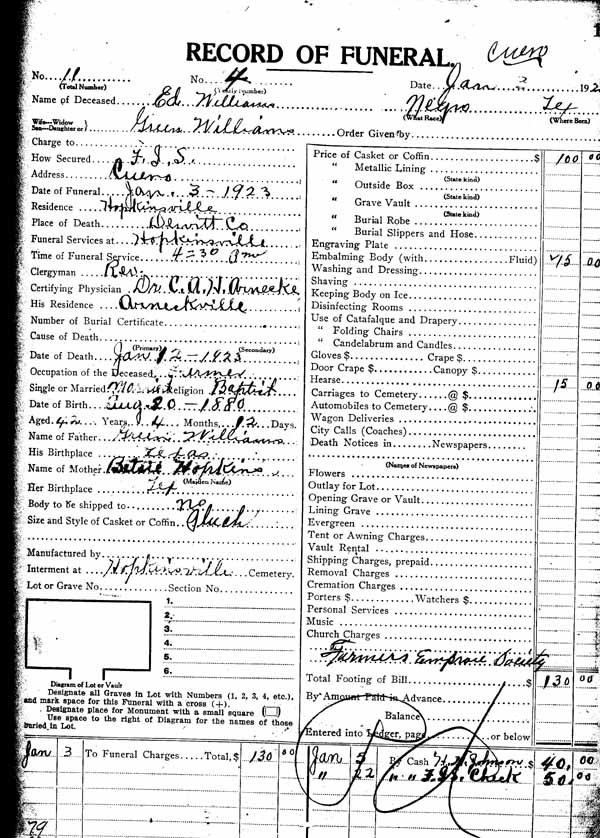 1
RECORD OF FUNERAL.
Cuero
No. 11 (Total Number)
No. 4 (Yearly Number)
Date Jan 2 192
Name of Deceased Ed Williams Negro (What Race) Tex (Where Born)
Wife—Widow
Son—Daughter of } Green Williams Order Given by
Charge to
How Secured F.I.S.
Address Cuero
Date of Funeral Jan. 3 - 1923
Residence Hopkinsville
Place of Death Dewitt Co.
Funeral Services at Hopkinsville
Time of Funeral Service 4=30 Pm
Clergyman Rev.
Certifying Physician Dr. C. A. H. Arnecke
His Residence Arneckville
Number of Burial Certificate
Cause of Death (Primary) (Secondary)
Date of Death Jan 2 - 1923
Occupation of the Deceased Farmer
Single or Married Married Religion Baptist
Date of Birth Aug 20 - 1880
Aged 42 Years 4 Months 12 Days.
Name of Father Green Williams
His Birthplace Texas
Name of Mother Betsie Hopkins (Maiden Name)
Her Birthplace Tex
Body to be shipped to no
Size and Style of Casket or Coffin
Manufactured by
Interment at Hopkinsville Cemetery.
Lot or Grave No. Section No.
1.
2.
3.
4.
5.
6.
Diagram of Lot or Vault
Designate all Graves in Lot with Numbers (1, 2, 3, 4, etc.),
and mark space for this Funeral with a cross (+).
Designate place for Monument with a small square
Use space to the right of Diagram for the names of those
buried in Lot.
Price of Casket or Coffin $ 100 00
" Metallic Lining (State kind)
" Outside Box (State kind)
" Grave Vault (State kind)
" Burial Robe
" Burial Slippers and Hose
Engraving Plate
Embalming Body (with Fluid) 15 00
Washing and Dressing
Shaving
Keeping Body on Ice
Disinfecting Rooms
Use of Catafalque and Drapery
" Folding Chairs
" Candelabrum and Candles
Gloves $ Crape $
Door Crape $ Canopy $
Hearse 15 00
Carriages to Cemetery @ $
Automobiles to Cemetery @ $
Wagon Deliveries
City Calls (Coaches)
Death Notices in Newspapers
(Names of Newspapers)
Flowers
Outlay for Lot
Opening Grave or Vault
Lining Grave
Evergreen
Tent or Awning Charges
Vault Rental
Shipping Charges, prepaid
Removal Charges
Cremation Charges
Porters $ Watchers $
Personal Services
Music
Church Charges
Farmers Improve Society
Total Footing of Bill $ 130 00
By Amount Paid in Advance
Balance
Entered into Ledger, page or below
Jan 3 To Funeral Charges Total, $ 130 00
Jan 5 By Cash Johnson $ 40.00
" 22 " " F.I.S. Check 50.00
79